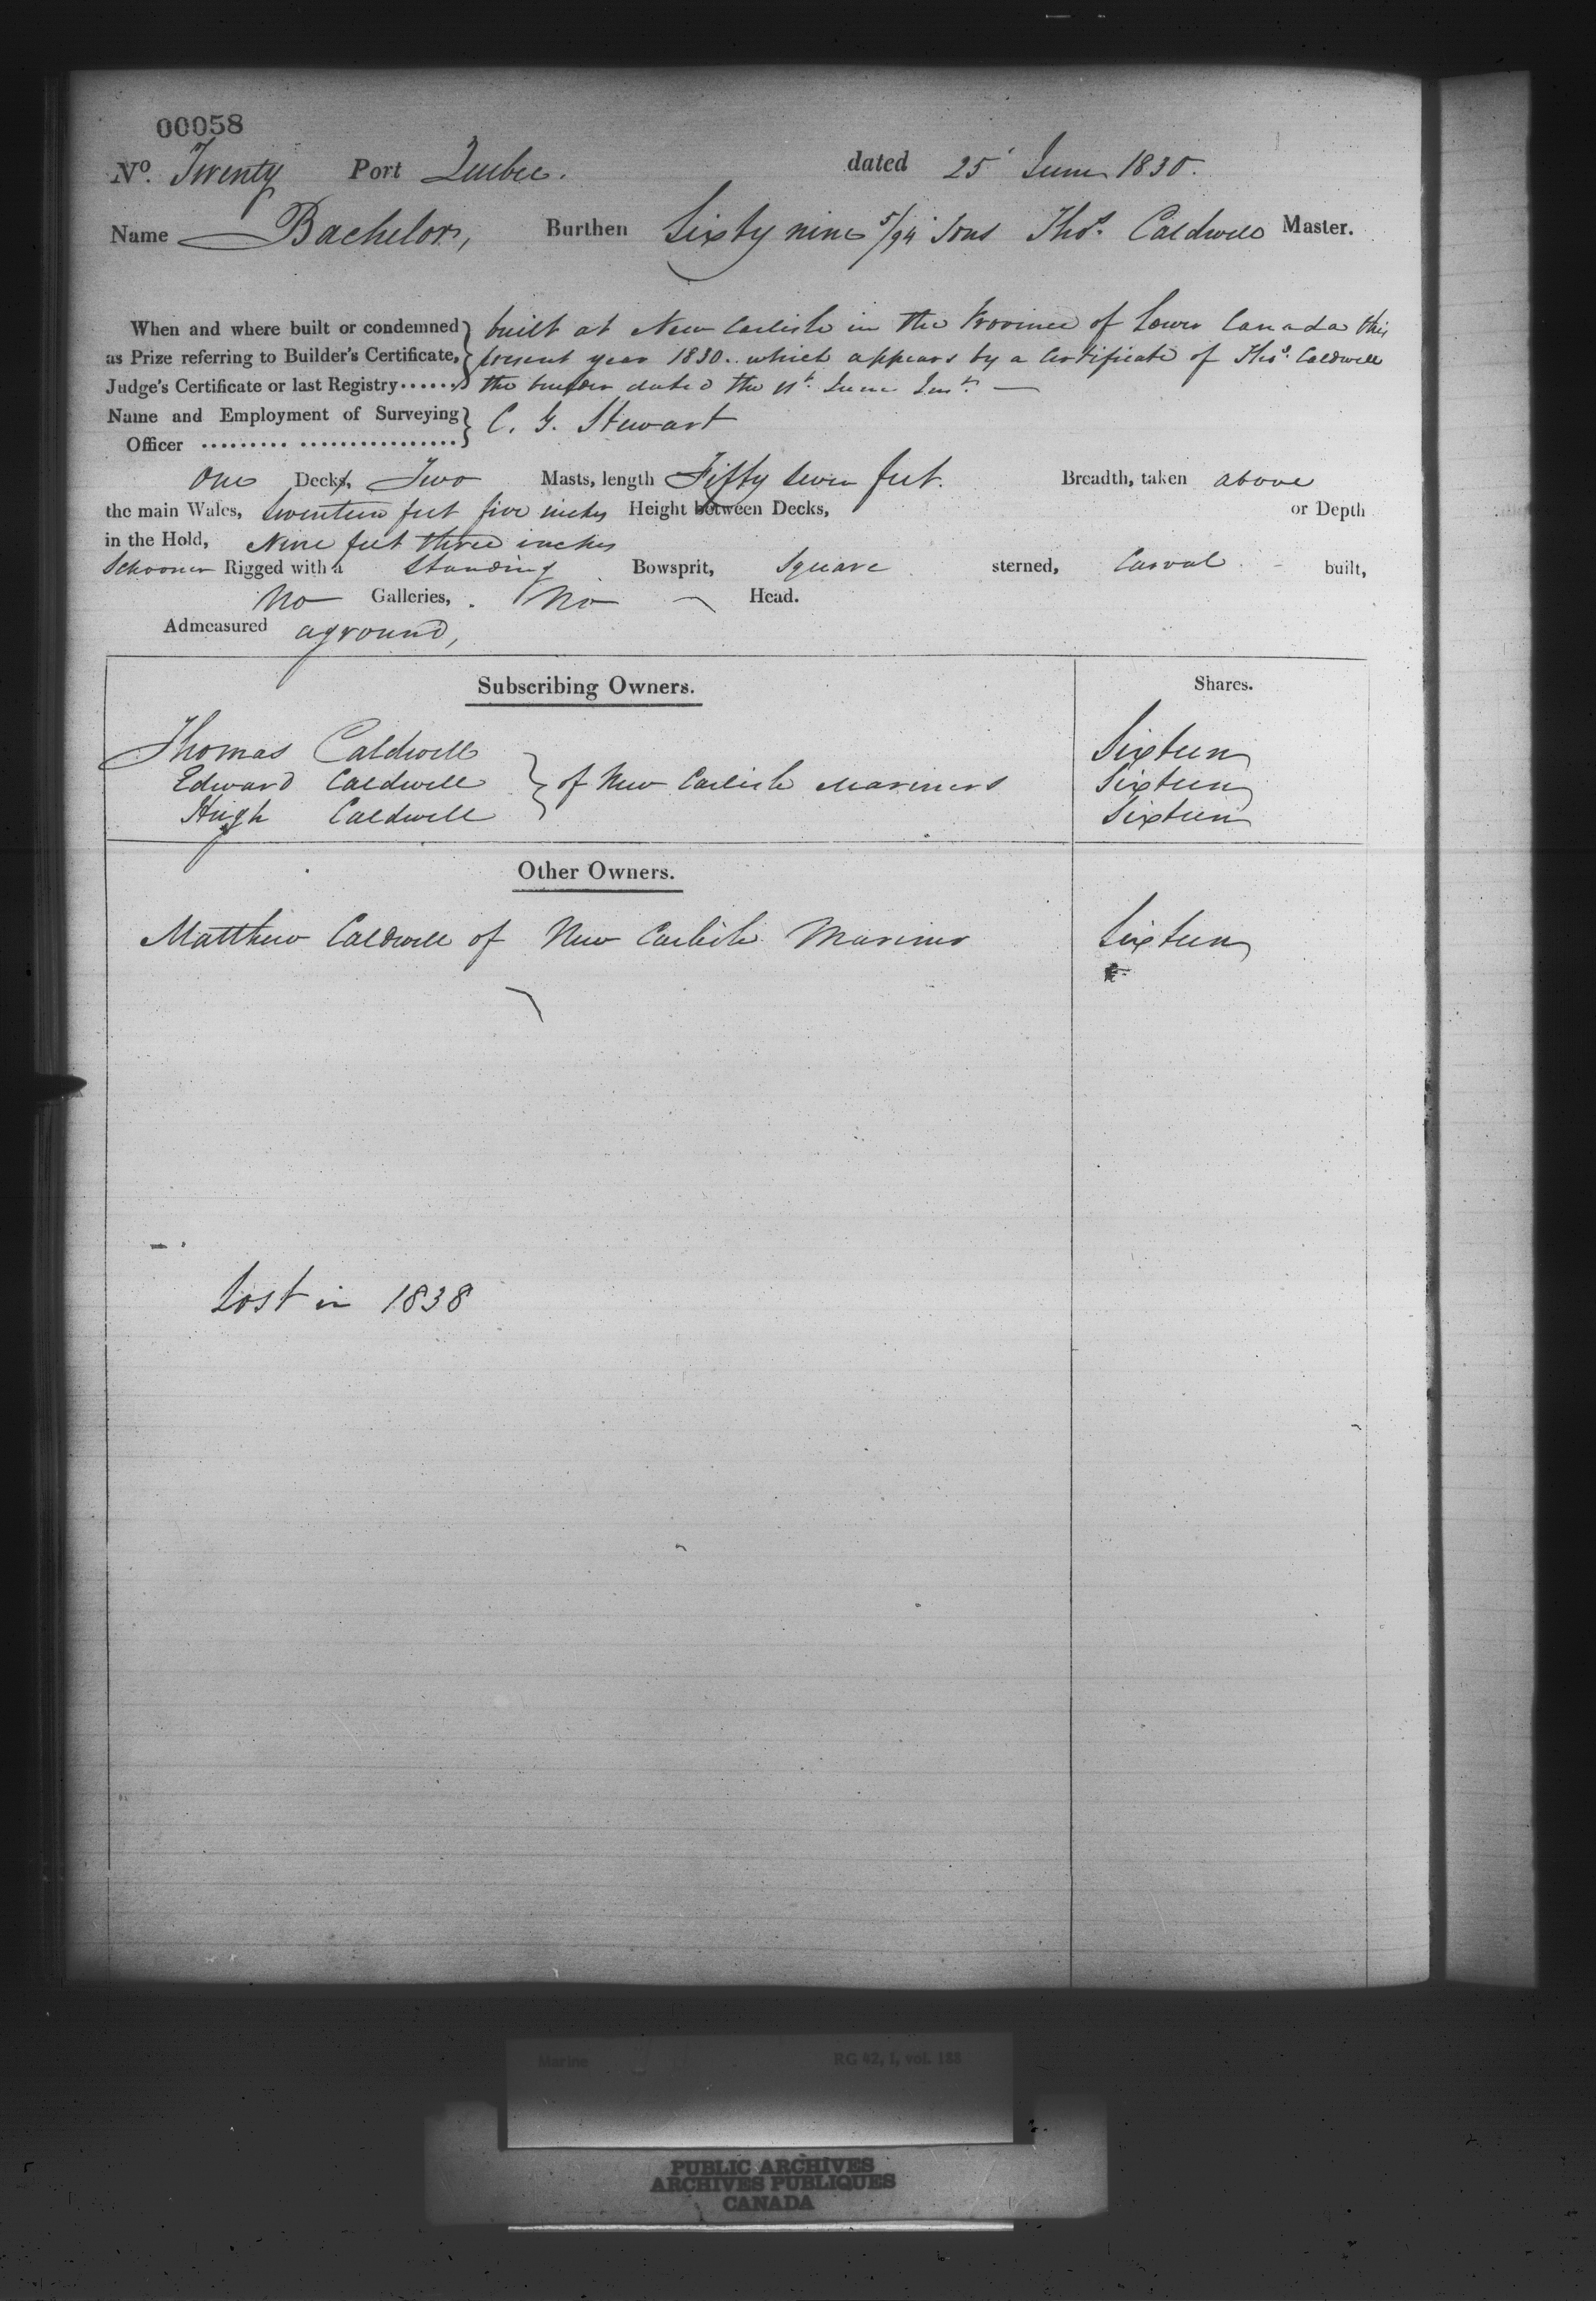 00058
No. Twenty Port Quebec. dated 25 June 1830.
Name Bachelor, Burthen Sixty nine 5/94 Tons Thos. Caldwell Master.
When and where built or condemned } built at New Carlisle in the Province of Lower Canada this
as Prize referring to Builder's Certificate, { present year 1830. which appears by a Certificate of Thos. Caldwell
Judge's Certificate or last Registry ...... } the builder dated the 11th. June Inst. —
Name and Employment of Surveying } C. G. Stewart
Officer ......... ................ }
One Decks, Two Masts, length Fifty seven feet. Breadth, taken above
the main Wales, Seventeen feet five inches Height between Decks, or Depth
in the Hold, Nine feet three inches
Schooner Rigged with a Standing Bowsprit, Square sterned, Carvel built,
No Galleries, No Head.
Admeasured aground,
Subscribing Owners. Shares.
Thomas Caldwell Sixteen
Edward Caldwell } of New Carlisle Mariners Sixteen
Hugh Caldwell Sixteen
Other Owners.
Matthew Caldwell of New Carlisle Mariner Sixteen
Lost in 1838
Marine RG 42, I, vol. 188
PUBLIC ARCHIVES
ARCHIVES PUBLIQUES
CANADA